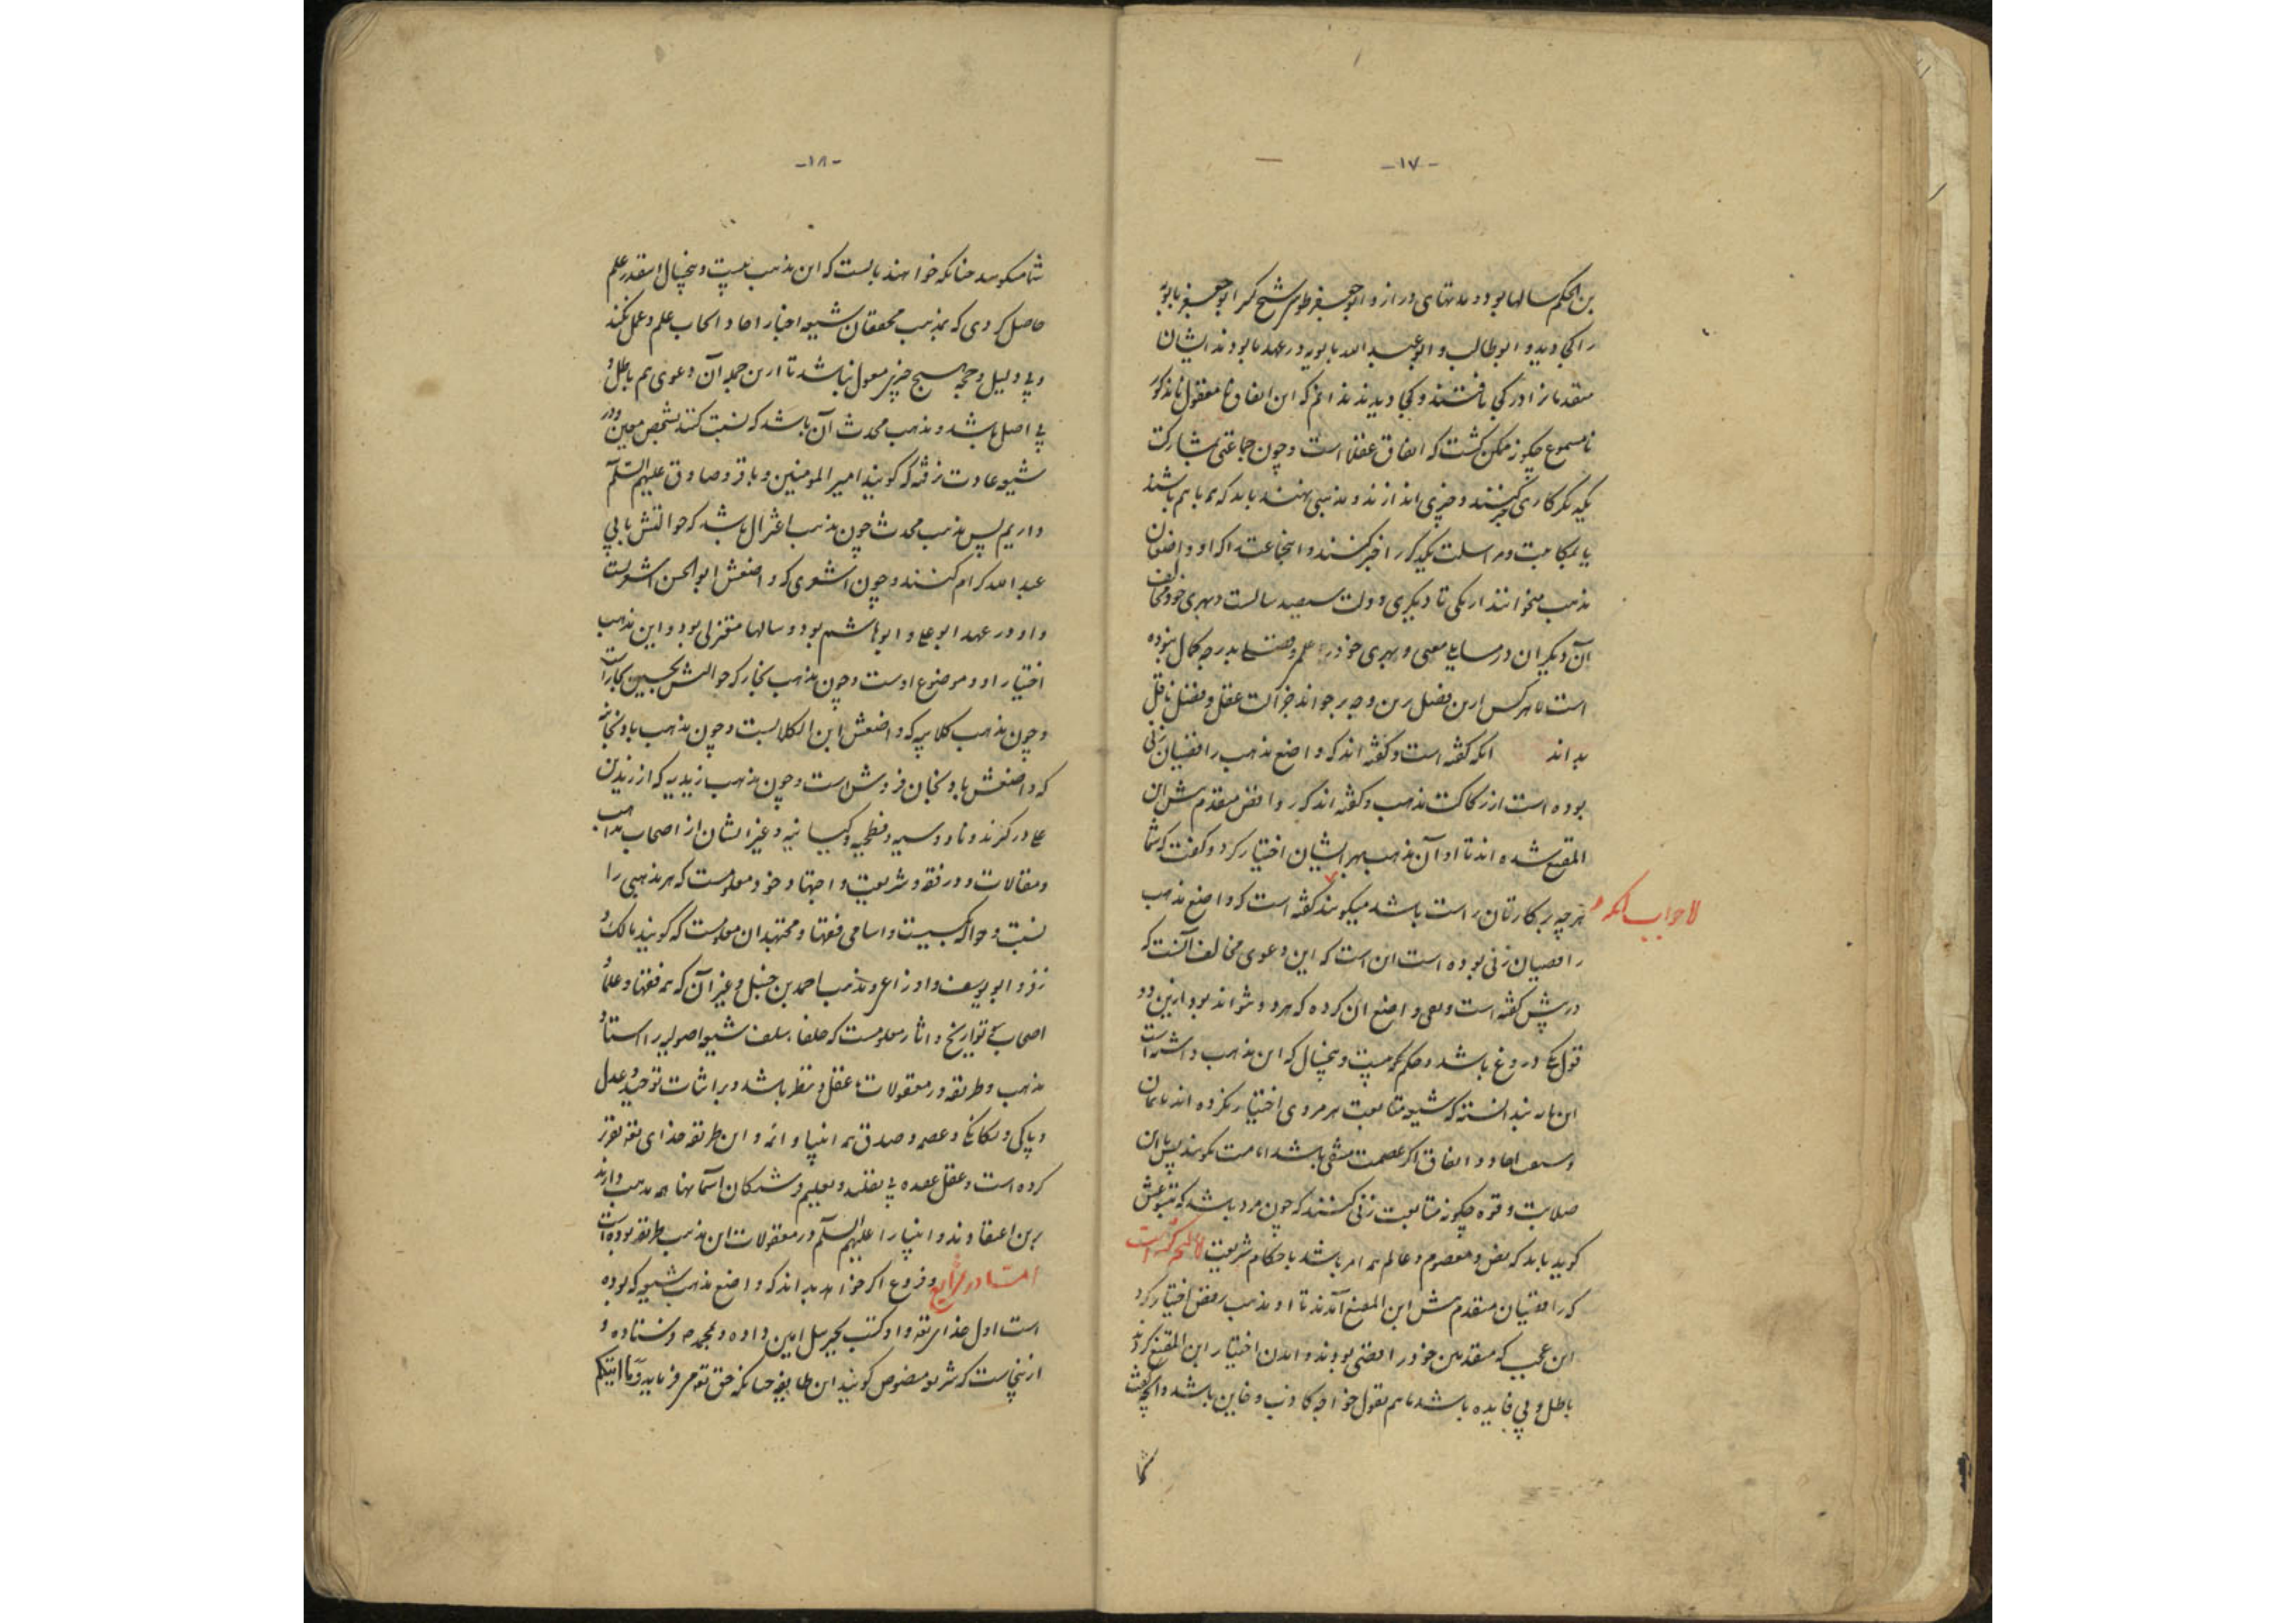 -۱۷-
بن الحکم سالها بود و مدتهای دراز و ابو جعفر طوسی شیخ کبیر ابو جعفر بابویه
را کجا دید و ابوطالب و ابو عبد الله بابویه در عهد ما بودند ایشان
متقدمانرا در کجا یافتند و کجا دیدند ندانم که این اتفاق نامعقول نامذکور
نامسموع چگونه ممکن گشت که اتفاق عقلا است و چون جماعتی بمشارکت
یکدیگر کاری کنند و چیزی اندازند و مذهبی نهند باید که همه باهم باشند
یا بمکاتبت و مراسلت یکدیگر را خبر کنند و اینجماعت را که او واضعان
مذهب میخوانند از یکی تا دیگری دولت سیصد سالست و بهری خود مخالف
آن دیگران در مسایل معنی و بهری خود در علم و فضل بدرجه کمال نبوده
است تا هر کس ازین فصل برین وجه برخواند جز آلت عقل و فضل ناقل
بداند آنکه گفته است و گفته اند که واضع مذهب رافضیان زنی
بوده است از رکاکت مذهب و گفته اند که روافض متقدم پیش ابن
المقنع شده اند تا او آن مذهب بهر ایشان اختیار کرد و گفت که شما
هر چه بر کارتان راست باشد میگویند گفته است که واضع مذهب
لا جواب آنکه
رافضیان زنی بوده است آن است که این دعوی مخالف آنست که
در پیش گفته است و نفی واضع آن کرده که هر دو نتواند بود ازین دو
قول یکی دروغ باشد و حکم محکمست و پنجسال که این مذهب داشته است
این مایه ندانسته که شیعه متابعت هر مردی اختیار نکرده اند
و سعت آحاد و اتفاق اگر عصمت منفی باشد امامت نگویند پس با این
صلابت و قوه چگونه متابعت زنی کنند که چون مرد باشد که متبوعش
گوید باید که نص و معصوم و عالم همه امر باشد باحکام شریعت لا آنچه گفته است
که رافضیان متقدم پیش ابن المقنع آمدند تا او مذهب رفض اختیار کرد
این عجب که متقدمین خود رافضی بودند و آمدن اختیار ابن المقنع کردند
باطل و بی فایده باشد تا هم بقول خواجه کاذب و خاین باشد و آنچه گفت
شما
-۱۸-
شما میگویید چنانکه خواهید بایست که این مذهب بیست و پنجسال اینقدر علم
حاصل کردی که بمذهب محققان شیعه اخبار آحاد ایجاب علم و عمل نکند
و بی دلیل و حجه هیچ چیز معول نباشد تا ازین جمله آن دعوی هم باطل و
بی اصل باشد و مذهب محدث آن باشد که نسبت کنند بشخص معین و در
شیعه عادت نرفته که گویند امیر المومنین و باقر و صادق علیهم السلام
داریم پس مذهب محدث چون مذهب اعتزال باشد که حوالتش بابی
عبد الله کرام کنند و چون اشعری که واضعش ابو الحسن اشعریست
و او در عهد ابو علی و ابو هاشم بود و سالها معتزلی بود و این مذهب
اختیار او و موضوع اوست و چون مذهب نجار که حوالتش بحسین نجار است
و چون مذهب کلابیه که واضعش ابن الکلابست و چون مذهب بادنجانیه
که واضعش بادنجان فروش است و چون مذهب زیدیه که از زید بن
علی در گیرند و ناووسیه و فطحیه و کیسانیه و غیر ایشان از اصحاب مذاهب
و مقالات و در فقه و شریعت و اجتهاد خود معلومست که هر مذهبی را
نسبت و حواله کیست و اسامی فقها و مجتهدان معلومست که گویند مالک و
زفر و ابو یوسف و اوزاعی و مذهب احمد بن حنبل و غیر آن که همه فقها و علما و
اصحاب تواریخ و آثار معلومست که خلفا، سلف شیعه اصولیه را استاد و
مذهب و طریقه در معقولات عقل و نظر باشد و بر اثبات توحید و عدل
و پاکی و یگانگی و عصمه و صدق همه انبیا و ائمه و این طریقه خدای تعالی تقریر
کرده است و عقل عقده بی تقلید و تعلیم فرشتگان آسمانها همه مذهب دارند
برین اعتقادند و انبیا را علیهم السلام در معقولات این مذهب طریقه بوده است
امّا در شرایع و فروع اگر خواهد بداند که واضع مذهب شیعه که بوده
است اول خدا تعالی و او کتب بجبرئیل امین داده و بمحمد ص فرستاده و
ازینجاست که شریعت منصوص گویند این طایفه چنانکه حق تعالی میفرماید وَمَا آتَیکُم